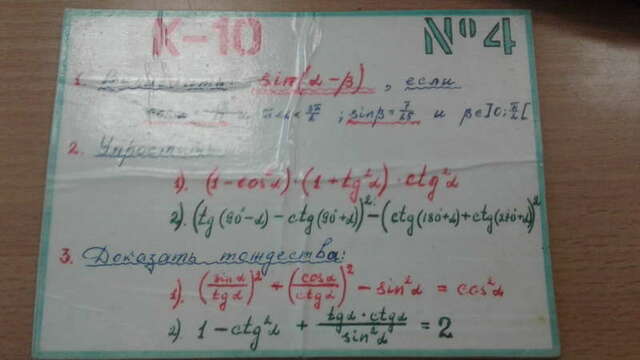 К-10 №4
1. sin(α-β), если
π<α<3π/2; sinβ=7/25 и β∈]0;π/2[
2. Упростить
1). (1-cos²α)·(1+tg²α)·ctg²α
2). (tg(90°-α)-ctg(90°+α))²-(ctg(180°+α)+ctg(270°+α))²
3. Доказать тождества:
1). (sinα/tgα)²+(cosα/ctgα)²-sin²α=cos²α
2) 1-ctg²α+tgα·ctgα/sin²α=2